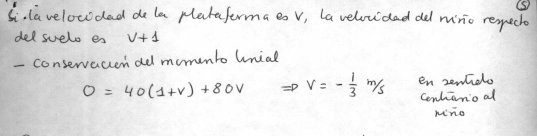 (5)
Si la velocidad de la plataforma es V, la velocidad del niño respecto
del suelo es V+1
- conservación del momento linial
0 = 40(1+v) + 80V ⇒ V = - 1/3 m/s en sentido
contrario al
niño